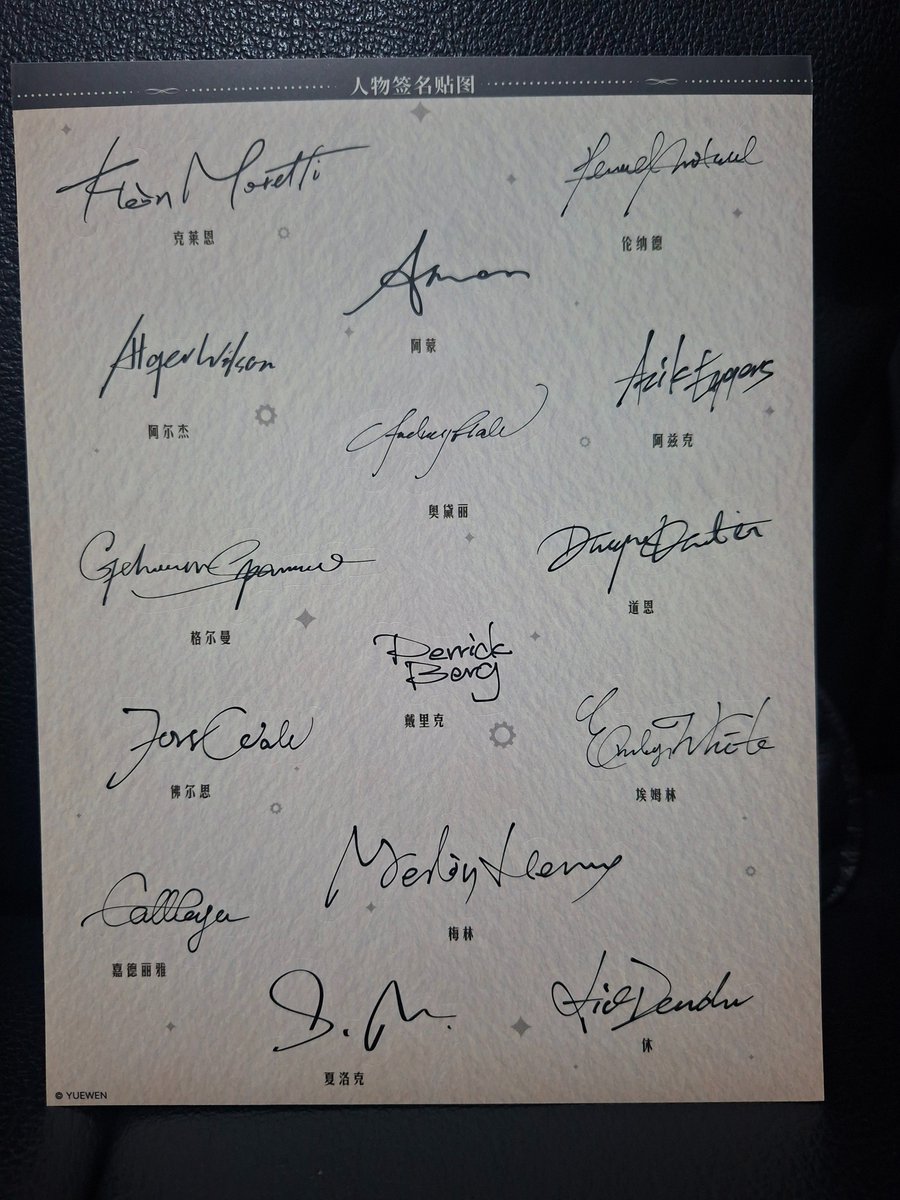 人物签名贴图
Klein Moretti
克莱恩
伦纳德
Amon
阿蒙
Alger Wilson
阿尔杰
Azik Eggers
阿兹克
Audrey Hall
奥黛丽
Gehrman Sparrow
格尔曼
Dwayne Dantès
道恩
Derrick
Berg
戴里克
Fors Wall
佛尔思
Emlyn White
埃姆林
Merlin Hermes
梅林
Cattleya
嘉德丽雅
S. M.
夏洛克
休
© YUEWEN